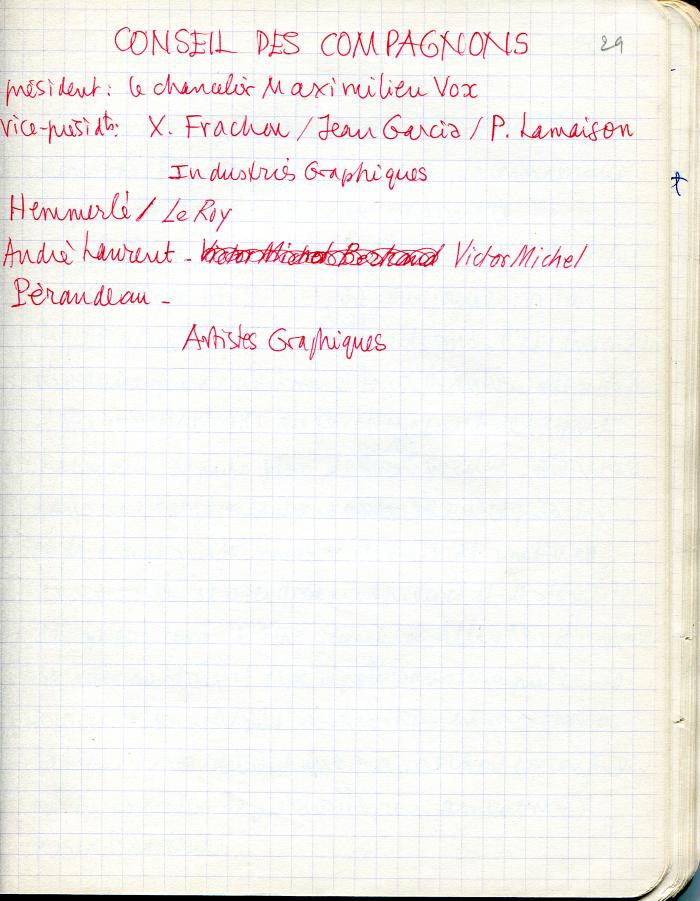 CONSEIL DES COMPAGNONS 29
président: le chancelier Maximilien Vox
vice-présidts: X. Frachon / Jean Garcia / P. Lamaison
Industries Graphiques
Hemmerlé / Le Roy
André Laurent - Victor Michel Bertrand Victor Michel
Pérandeau -
Artistes Graphiques